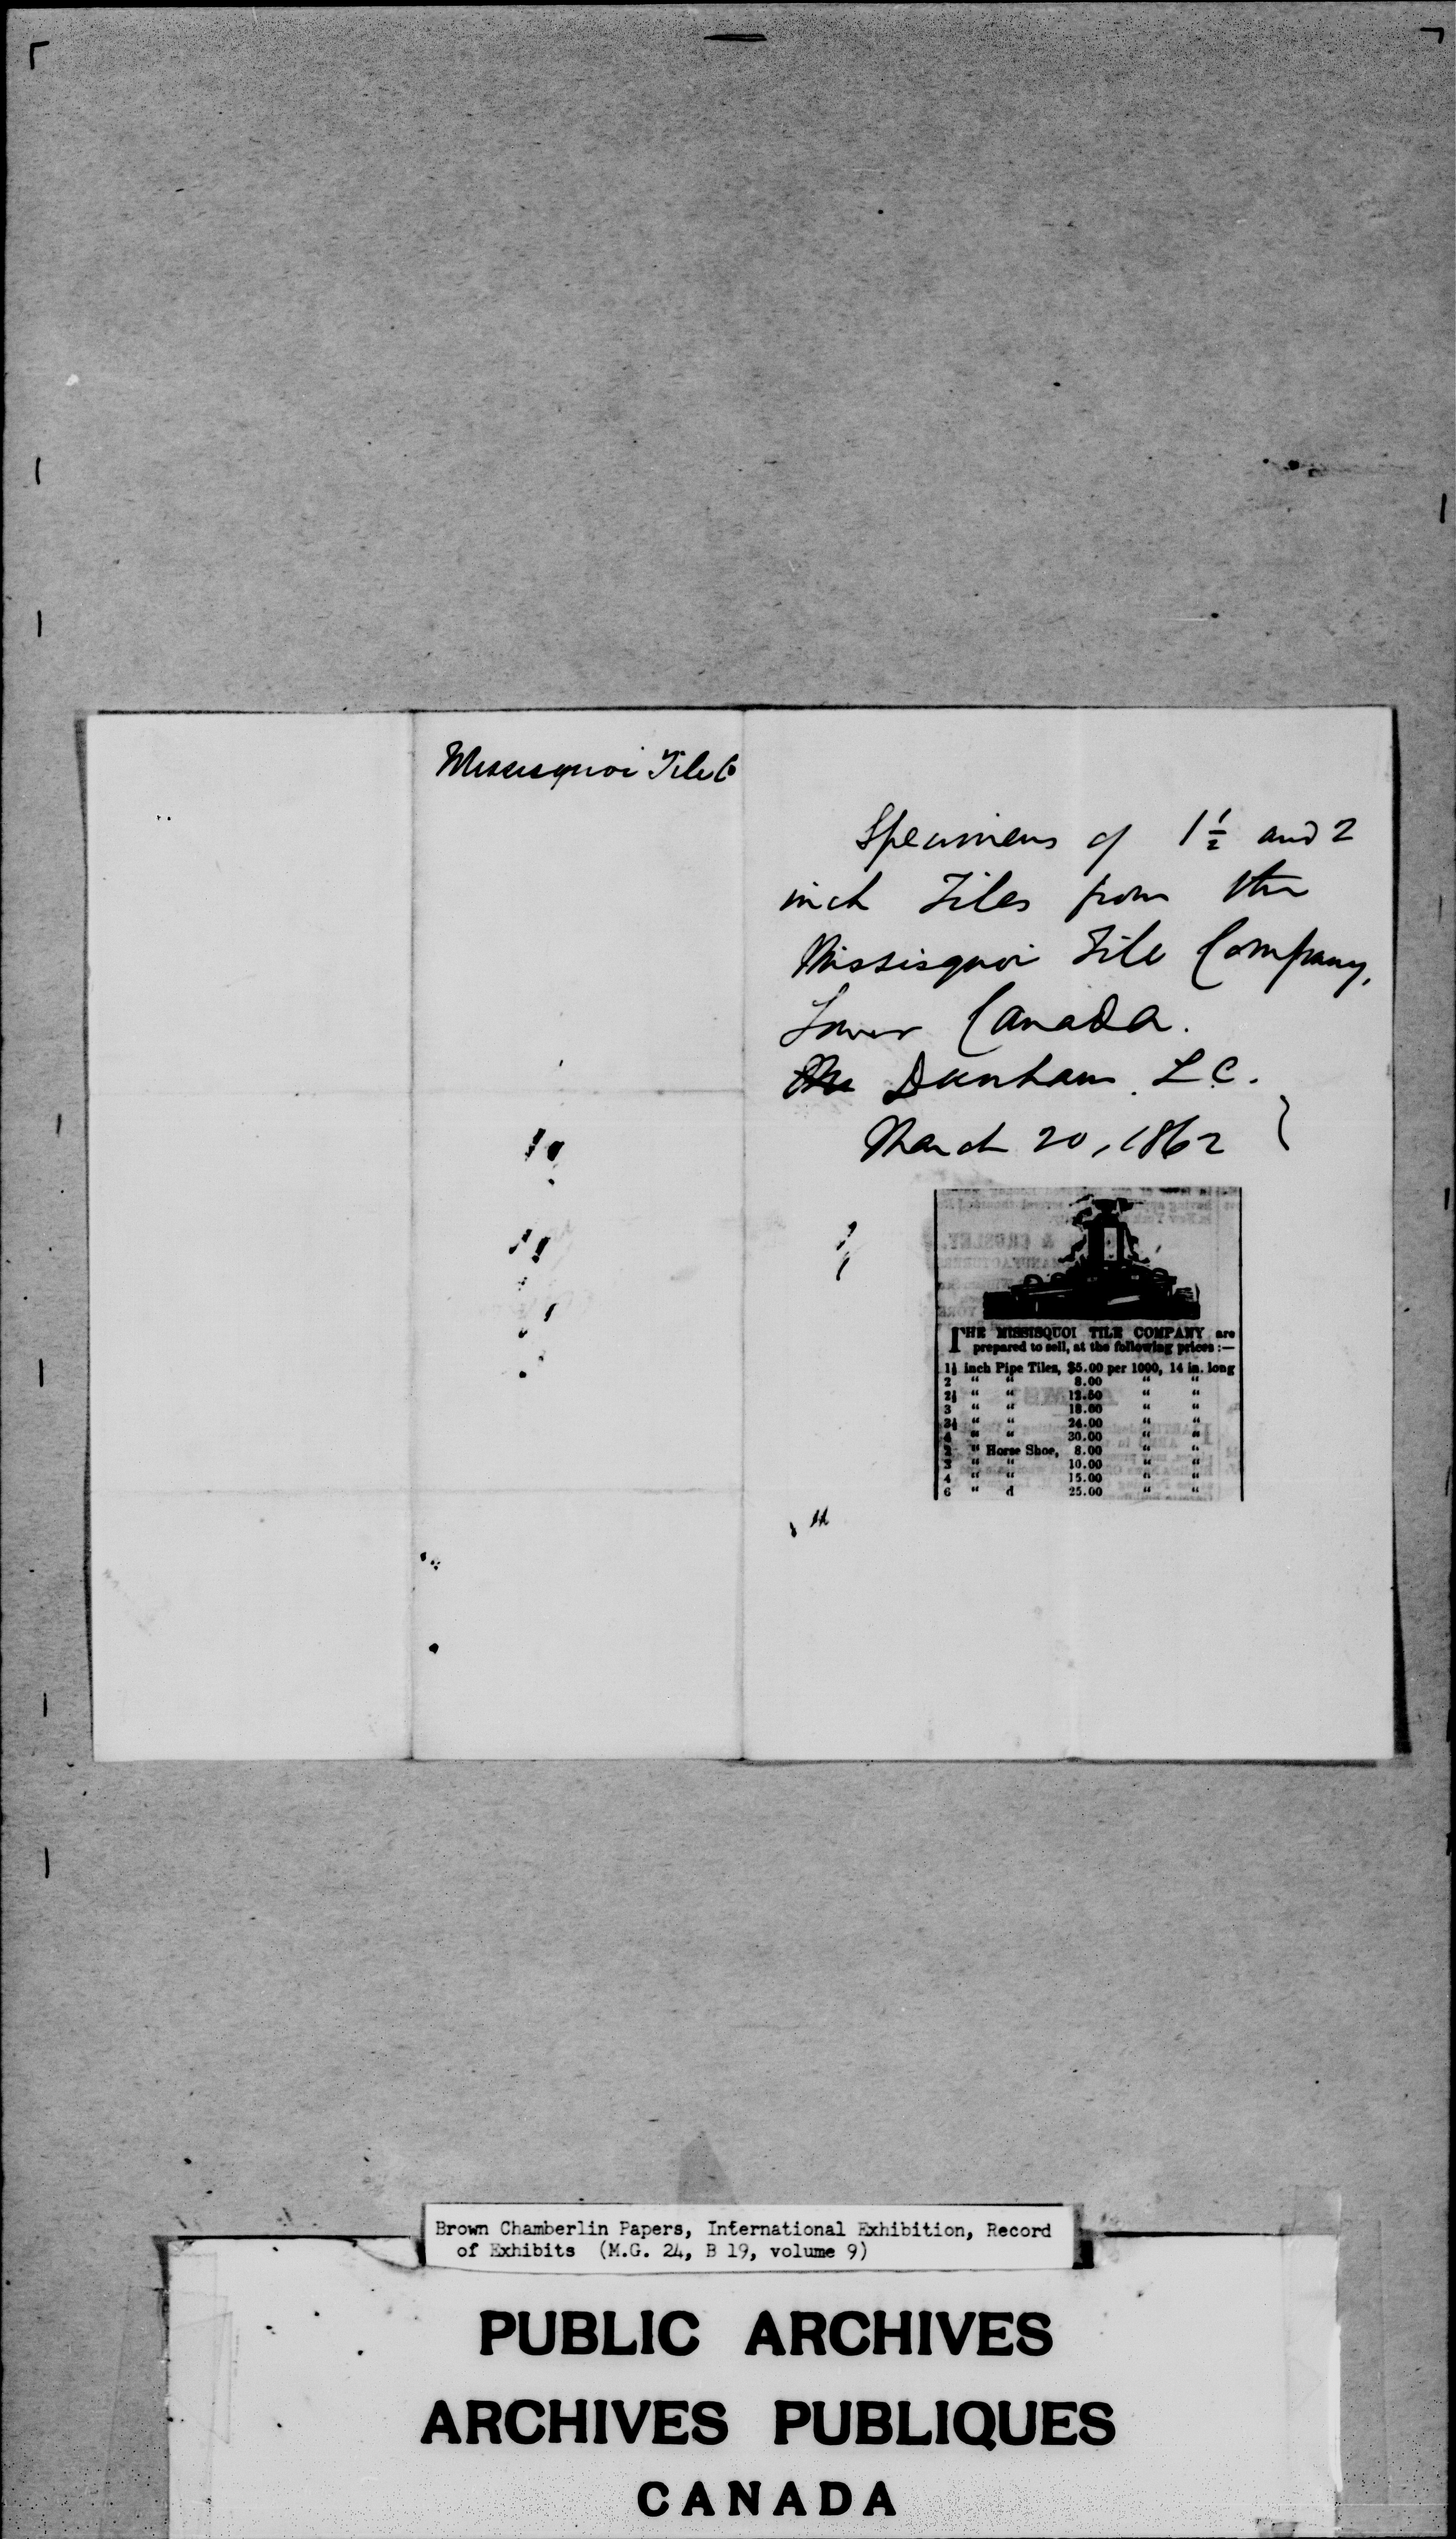 Missisquoi Tile Co
Specimens of 1½ and 2
inch Tiles from the
Missisquoi Tile Company,
Lower Canada.
Dunham. L.C.
March 20, 1862
THE MISSISQUOI TILE COMPANY are
prepared to sell, at the following prices :—
1½ inch Pipe Tiles, $5.00 per 1000, 14 in. long
2 " " 8.00 " "
2½ " " 12.50 " "
3 " " 18.00 " "
3½ " " 24.00 " "
4 " " 30.00 " "
2 " Horse Shoe, 8.00 " "
3 " " 10.00 " "
4 " " 15.00 " "
6 " d 25.00 " "
Brown Chamberlin Papers, International Exhibition, Record
of Exhibits (M.G. 24, B 19, volume 9)
PUBLIC ARCHIVES
ARCHIVES PUBLIQUES
CANADA